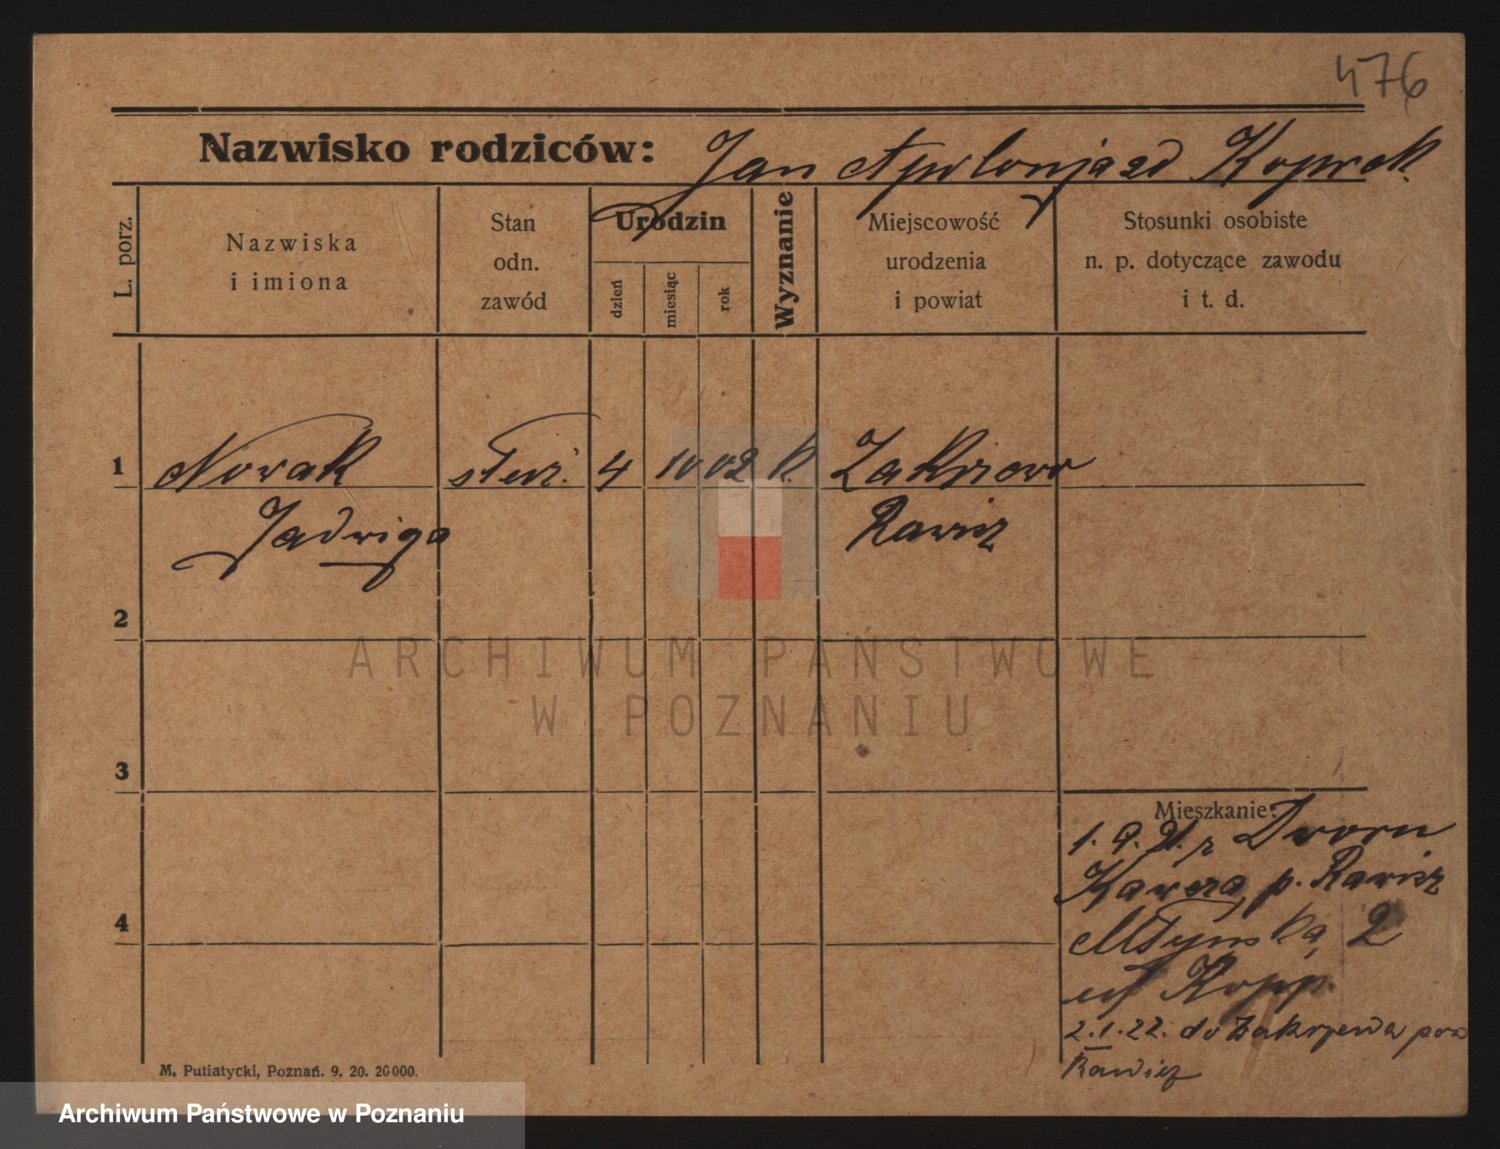 476
Nazwisko rodziców: Jan Apolonja zd
L. porz.
Nazwiska
i imiona
Stan
odn.
zawód
Urodzin
dzień
miesiąc
rok
Wyznanie
Miejscowość
urodzenia
i powiat
Stosunki osobiste
n. p. dotyczące zawodu
i t. d.
1
Nowak służ. 4 10 02 k. Zakrzewo
Jadwiga Rawicz
2
3
4
Mieszkanie:
1. 9. 21. z Dworu
p. Rawicz
Młyńska 2
2.1.22. do
Rawicz
M. Putiatycki, Poznań. 9. 20. 20000.
ARCHIWUM PAŃSTWOWE
W POZNANIU
Archiwum Państwowe w Poznaniu